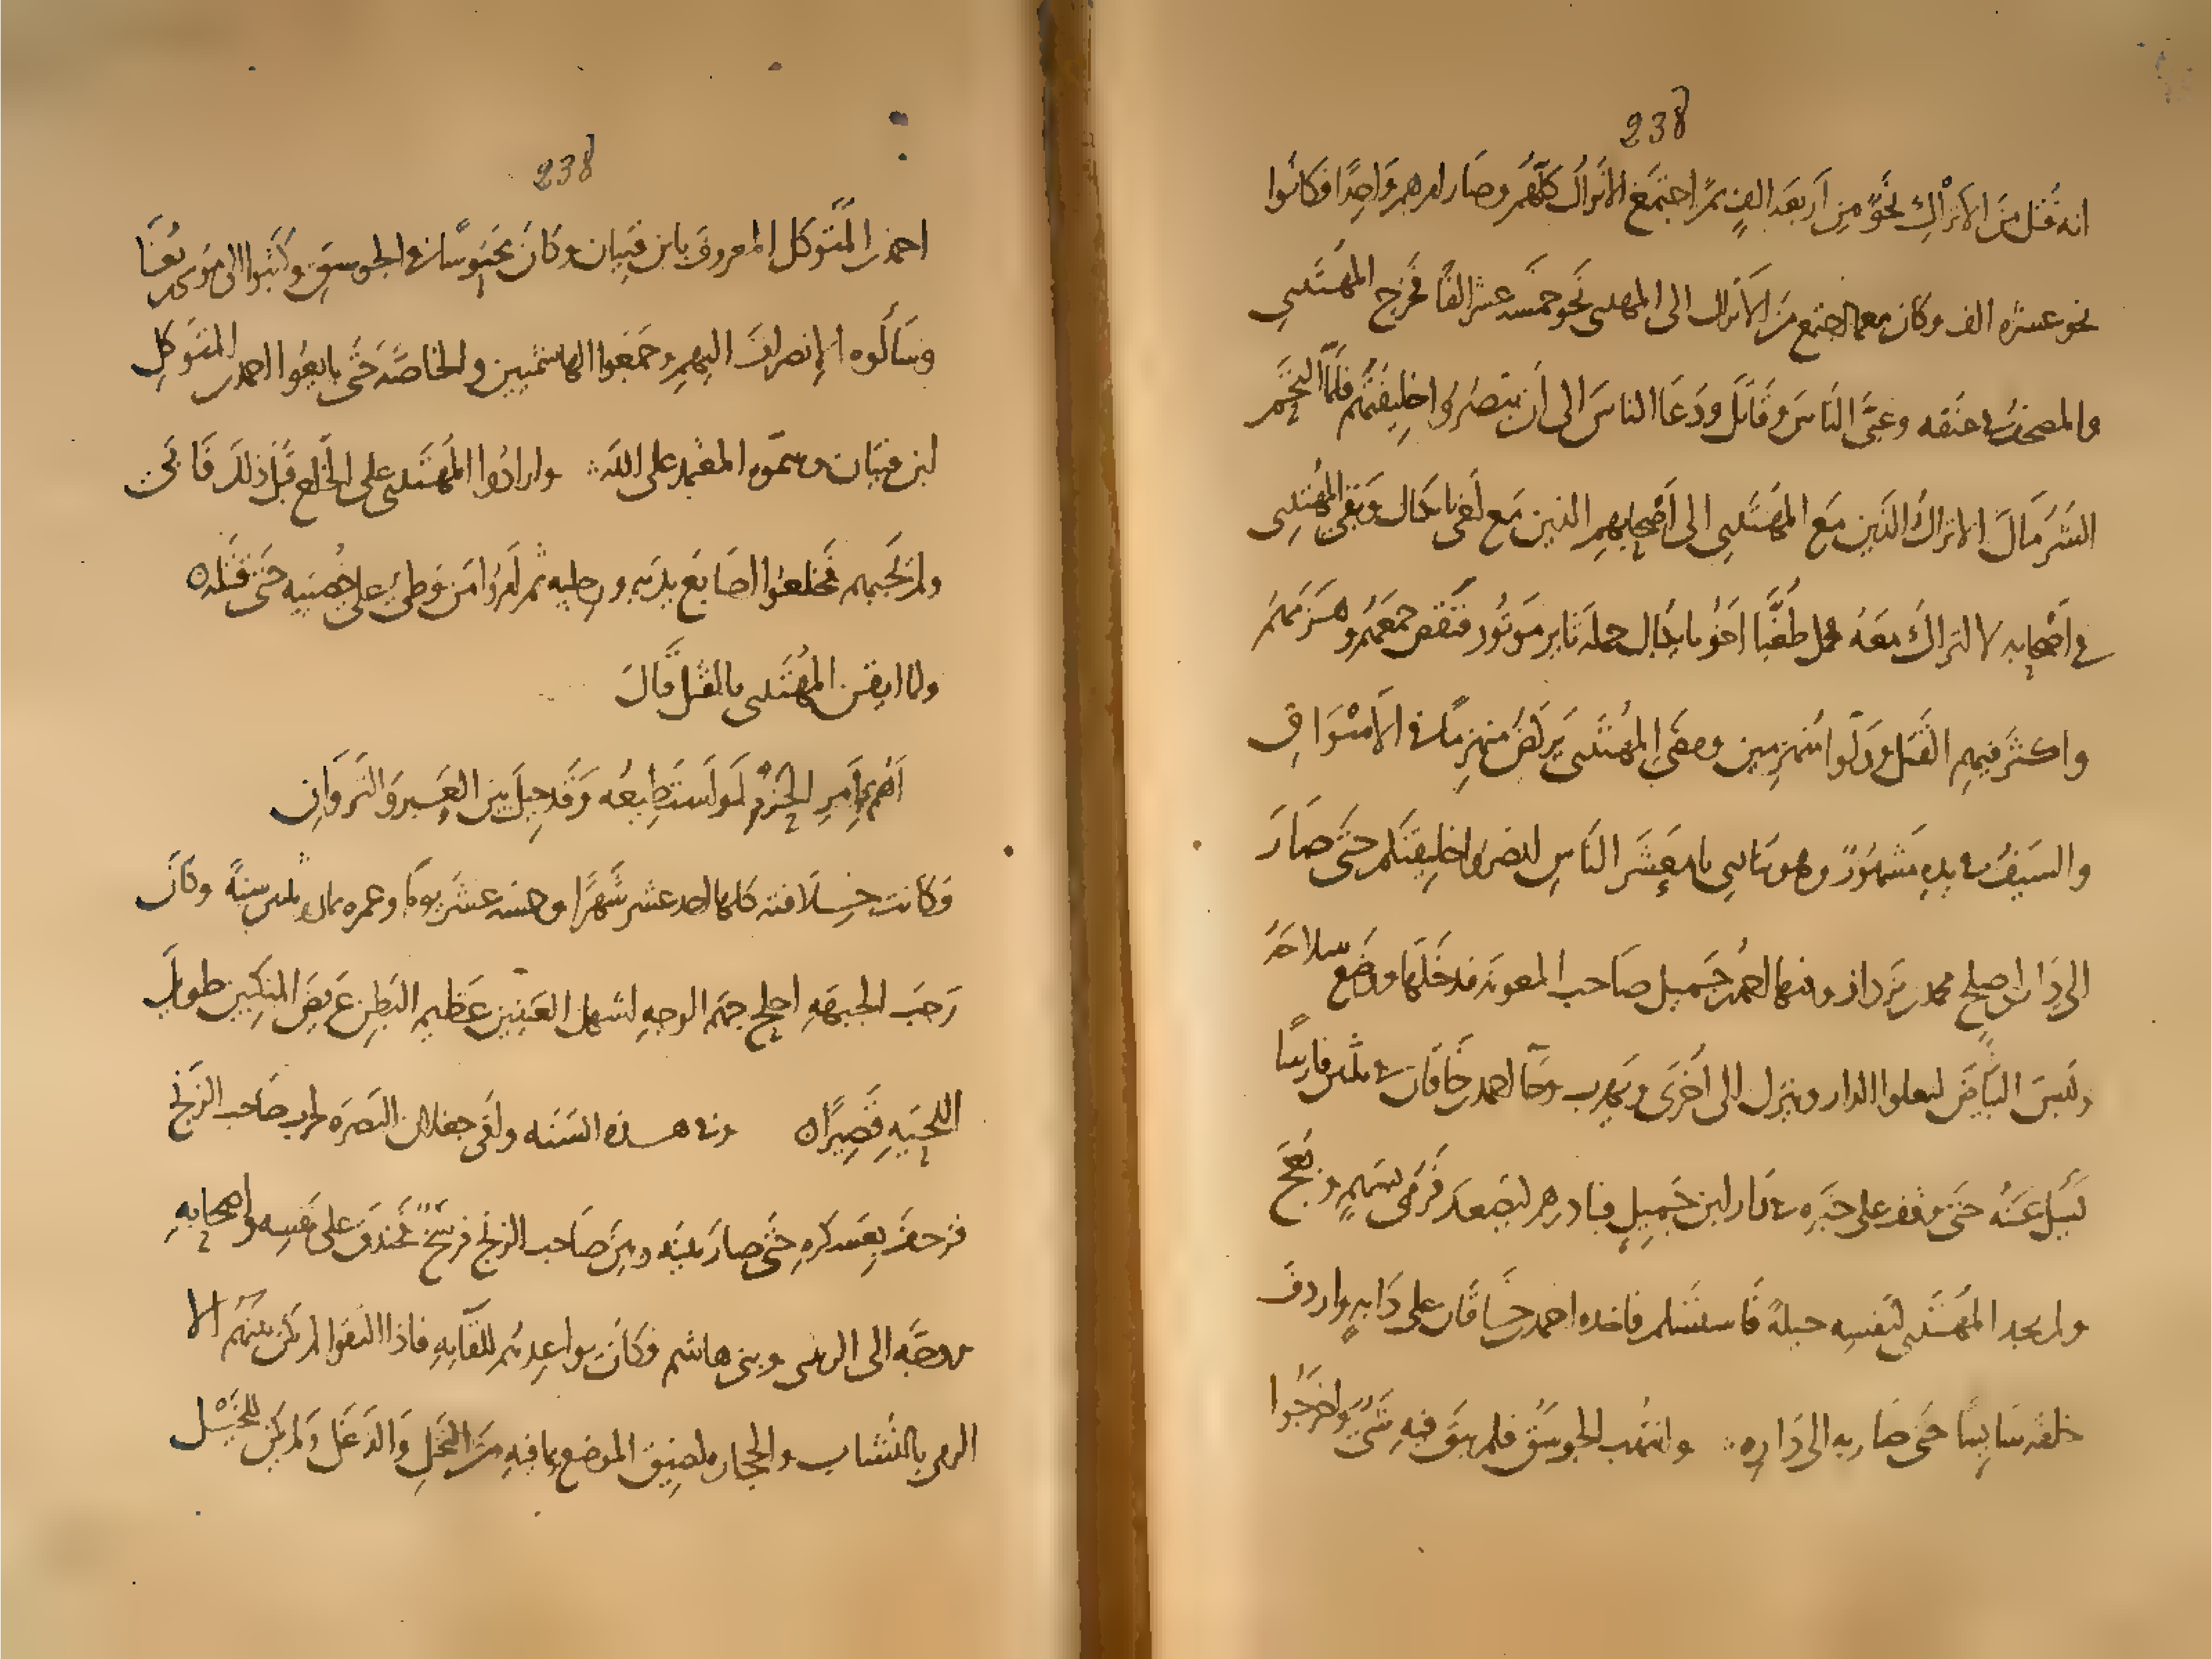 238
انه قُتل منَ الاتراكِ نحوٌ مِن اَربعَه الفٍ ثمّ اجتمَعَ الاتراكُ كلّهُم وصَار امرهم وَاحِدًا فكانُوا
نحو عشره الف وكان معما اجتمع منَ الاَتراك الى المهتدى نحو خمسَه عشر الفًا فخرج المهتَدِى
والمصحف فى عنقه وعبّى النَاسَ وقاتَلَ ودَعَا الناسَ الى اَن ينصُرُوا خليفَتهُم فلمّا التحَم
الشَر مَالَ الاتراكُ الذين مَع المهتَدِى الى اَصْحابهمِ الذين مَع اَخى بايكبَاك وَبقى المهتدِى
فى اَصْحابه لا اتراكَ معَهُ فحمل طُغيَّا اَخُو بايكبَال حملة ثاير مَوتُور فنقض جمعَهُم وهَزَمَهُم
واكثرَ فيهمِ القَتل وَولّوا مُنهزِمين ومضَى المهتدَى يَركُضُ منهزِمًا فى الاَسْوَاقِ
والسَيفُ فى يدِهِ مَشهُورٌ وهو يَنادِى يا مَعِشَر النَاسِ انصرُوا خليفتَكم حتى صَارَ
الى دَار ابى صلح محمد بن يَزداذ وفيها احمدُ بن جَميل صَاحب المعونَة فدخَلَهَا ووضَع سلاحَهُ
ولَبسَ البَيَاضَ ليعلوا الدار وينزل الى اُخرَى ويَهرب وجَآ احمد بن خَاقان فى ثلثين فارسًا
يَسَل عَنهُ حَتى وقف على خبَرِه فى دَار ابن جَميل فبادرهم ليَصعد فرُمى بسَهمٍ وبُعجَ
ولم يجد المهتَدى لنفسِه حيلةً فَاستَسْلم فاخده احمد بن خَاقَان على دَابه واردفَ
خلفَه سَايسًا حَتى صَار به الى دَاره وانتُهب الجوسَق فلم يبقَ فيه شَىٌ واخرَجُوا
238
احمَد بن المتَوكل المعروفَ بابن فتيان وكَانَ مَحبُوسًا فى الجوسَقِ وكَتبُوا الى مُوسى بن بُغَا
وسَاَلُوه الاِنصرافَ اليهمِ وجَمَعوا الهاشميين والخاصَّه حَتّى بايعُوا احمد بن المتَوكِل
ابن فتيَان وسمّوه المعتمِد على اللَه وارادُوا المهتَدى على الخَلع قَبل ذلكَ فَابَى
ولم يُجبهم فخلعُوا اصَابعَ يدَيهِ ورجليه ثم اَمرُوا مَن وَطى على خصيَيه حَتى قتله
ولما ايقن المهتَدى بالقَتل قَالَ
اَهُمّ بِاَمرِ الحَزْمِ لَو اَستَطِيعُه وَقَد حِيلَ بينَ العَيرِ وَالنَزَوَانِ
وَكانت خِلافته كلها احد عشر شَهرًا وخمسَه عَشَر يومًا وعمره ثمان وثلثين سنةً وكانَ
رَحبَ الجبهَهِ اجلح جهم الوجهِ اشهل العَينين عَظيم البَطنِ عَريضَ المنكِبَين طَويلَ
اللحيَهِ قَصِيرًا وفى هذه السَنَه وافى جعلان البَصرَه لحرب صَاحب الزنجِ
فزحفَ بِعَسكَرهِ حَتى صَارَ بينَه وبينَ صَاحب الزنجِ فرسَخٌ فخندَقَ على نفسِه واصحَابِهِ
ووجّه الى الزينبى وبنى هاشم فكانَ يواعِدهُم للقَايهِ فاذا التقوا لم يكن بينَهُم الا
الرمى بالنُشاب والحجاره لضِيق الموضع بما فيهِ منَ النخلِ وَالدَغَل وَلم يَكُن للخَيْل